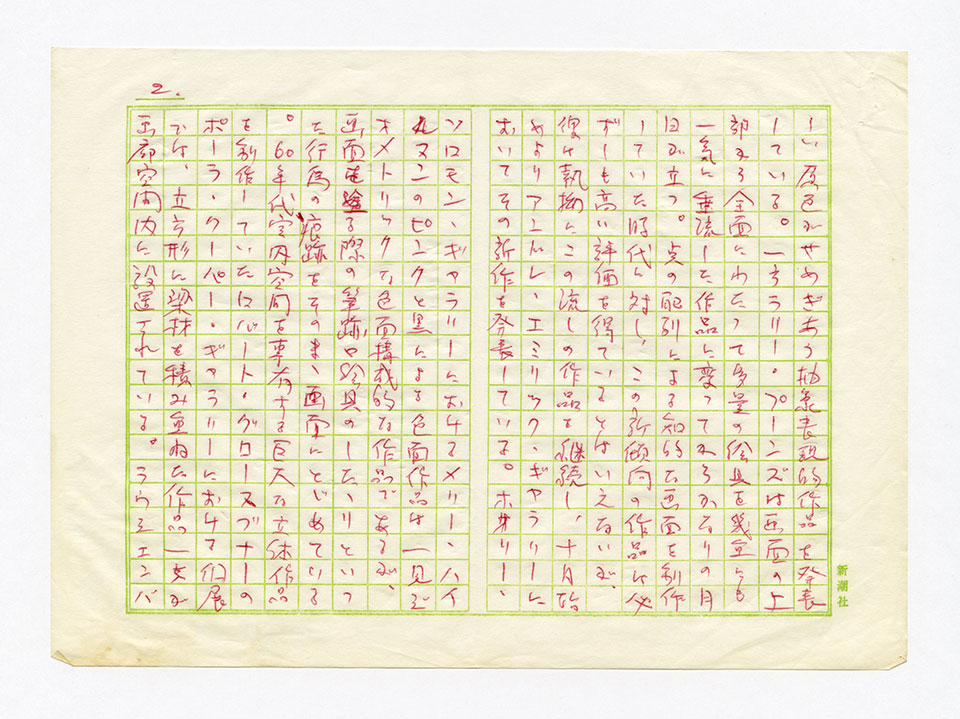 2.
しい原色がせめぎあう抽象表現的作品を発表
している。一方ラリー・プーンズは画面の上
部から全面にわたって多量の絵具を幾重にも
一気に垂流した作品に変ってからかなりの月
日が立つ。点の配列による知的な画面を制作
していた時代に対し、この新傾向の作品は必
ずしも高い評価を得ているとはいえないが、
彼は執拗にこの流しの作品を継続し、十月始
めよりアンドレ・エミリック・ギャラリーに
おいてその新作を発表している。ホオリー・
ソロモン・ギャラリーにおけるメリー・ハイ
ルマンのピンクと黒による色面作品は一見ジ
オメトリックな色面構成的な作品であるが、
画面を塗る際の筆跡や絵具のしたたりといっ
た行為の痕跡をそのまま画面にとどめている
。60年代室内空間を専有する巨大な立体作品
を制作していたロバート・グロースブナーの
ポーラ・クーパー・ギャラリーにおける個展
では、立方形に梁材を積み重ねた作品一点が
画廊空間内に設置されている。ラウシェンバ
新潮社